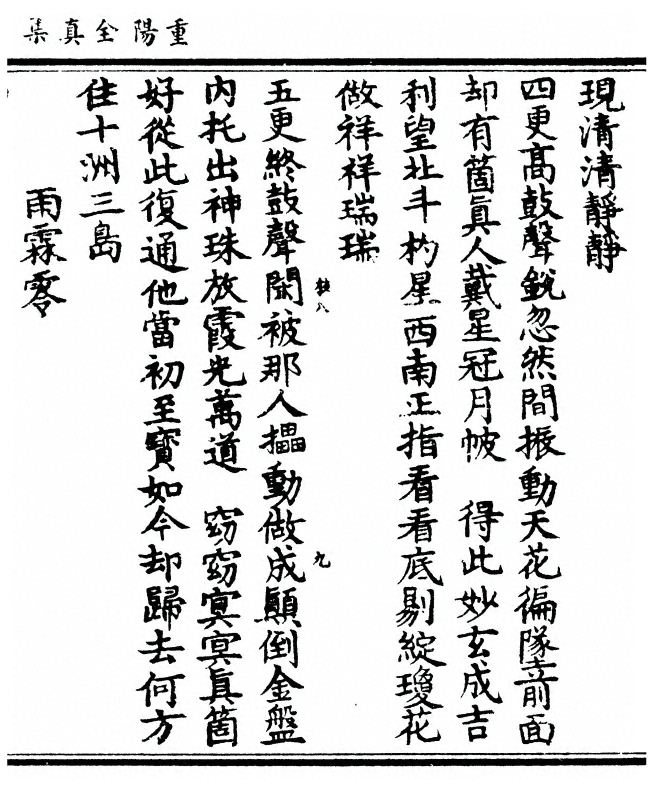 重陽全真集
現清清靜靜
四更高鼓聲銳忽然間振動天花徧墜前面
却有箇眞人戴星冠月帔　得此妙玄成吉
利望北斗杓星西南正指看看底剔綻瓊花
做祥祥瑞瑞
五更終鼓聲閙被那人擂動做成顚倒金盤
內托出神珠放霞光萬道　窈窈冥冥眞箇
好從此復通他當初至寳如今却歸去何方
住十洲三島
雨霖零
九